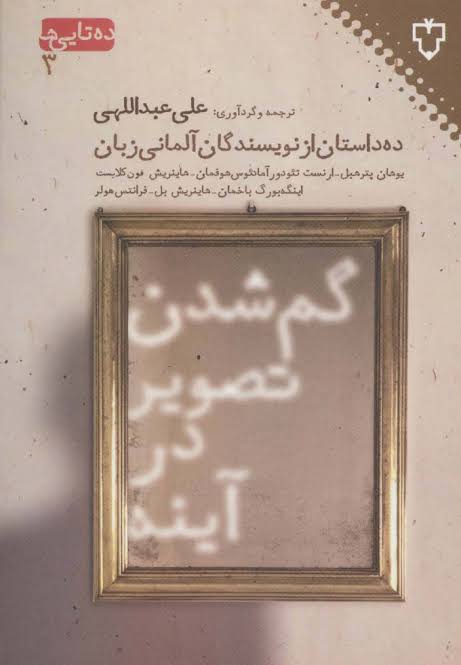 ده‌تایی‌ها
۳
ترجمه و گردآوری: علی عبداللهی
ده داستان از نویسندگان آلمانی زبان
یوهان پتر هبل - ارنست تئودور آمادئوس هوفمان - هاینریش فون کلایست
اینگه بورگ باخمان - هاینریش بل - فرانتس هولر
گم شدن
تصویر
در
آینه